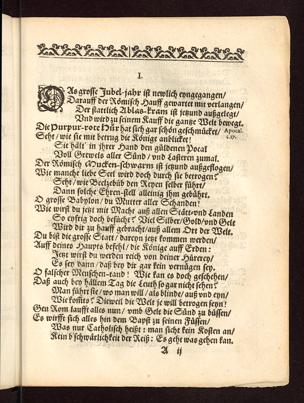 I.
DAs grosse Jubel-jahr ist newlich eyngegangen/
Darauff der Römisch Hauff gewartet mit verlangen/
Der stattlich Ablas-kram ist jetzund außgelegt/
Und wird zu seinem Kauff die gantze Welt bewegt.
Die Purpur-rote Hur hat sich gar schön geschmücket/
Apocal.
Seht/ wie sie mit betrug die Könige anblicket!
Sie hält in ihrer Hand den güldenen Pocal
Voll Grewels aller Sünd/ und Lastern zumal.
Der Römisch Mucken-schwarm ist jetzund außgeflogen/
Wie manche liebe Seel wird doch durch sie betrogen?
Seht/ wie Beelzebüb den Reyen selber führt/
Dann solche Ehren-stell alleinig ihm gebührt.
O grosse Babylon/ du Mutter aller Sünden?
Wie wirst du jetzt mit Macht auß allen Stätt und Landen
So eyfrig doch besucht? Viel Silber/Gold/und Gelt
Wird dir zu hauff gebracht/ auß allem Ort der Welt.
Du bist die grosse Statt/ dareyn jetzt kommen werden/
Auff deines Haupts befehl/ die Könige auff Erden:
Jetzt wirst du werden reich von deiner Hürerey/
Es sey dann/ daß bey dir gar kein vernügen sey.
O falscher Menschen-tand! Wie kan es doch geschehen/
Daß auch bey hällem Tag die Leuth so gar nicht sehen?
Man führt sie/ wo man will/ als blinde/ auß und eyn/
Wie kompts? Dieweil die Welt je will betrogen seyn!
Gen Rom laufft alles nun/ umb Gelt die Sünd zu büssen/
Es wirfft sich alles hin dem Bapst zu seinen Füssen/
Was nur Catholisch heißt: man sicht kein Kosten an/
Kein b'schwärlichkeit der Reiß: Es geht was gehen kan.
A ij